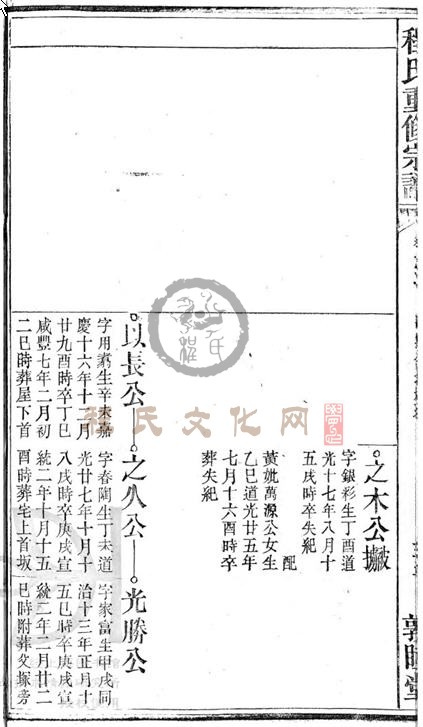 程氏重修宗譜
敦睦堂
之木公撇
字銀彩生丁酉道
光十七年八月十
五戌時卒失紀
配
黃妣萬源公女生
乙巳道光廿五年
七月十六酉時卒
葬失紀
以長公—之久公—光勝公
字用素生辛未嘉
慶十六年十二月
廿九酉時卒丁巳
咸豐七年二月初
二巳時葬屋下首
字春陶生丁未道
光廿七年十月十
八戌時卒庚戌宣
統二年十月十五
酉時葬宅上首坂
字家富生甲戌同
治十三年正月十
五巳時卒庚戌宣
統二年二月廿二
巳時附葬父塚旁
程氏文化网